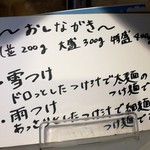 ～おしながき～
並200g 大盛300g 特盛400g
・雪つけ
ドロッとしたつけ汁で太麺の
つけ麺で
・雨つけ
あっさりとしたつけ汁で細麺
つけ麺で